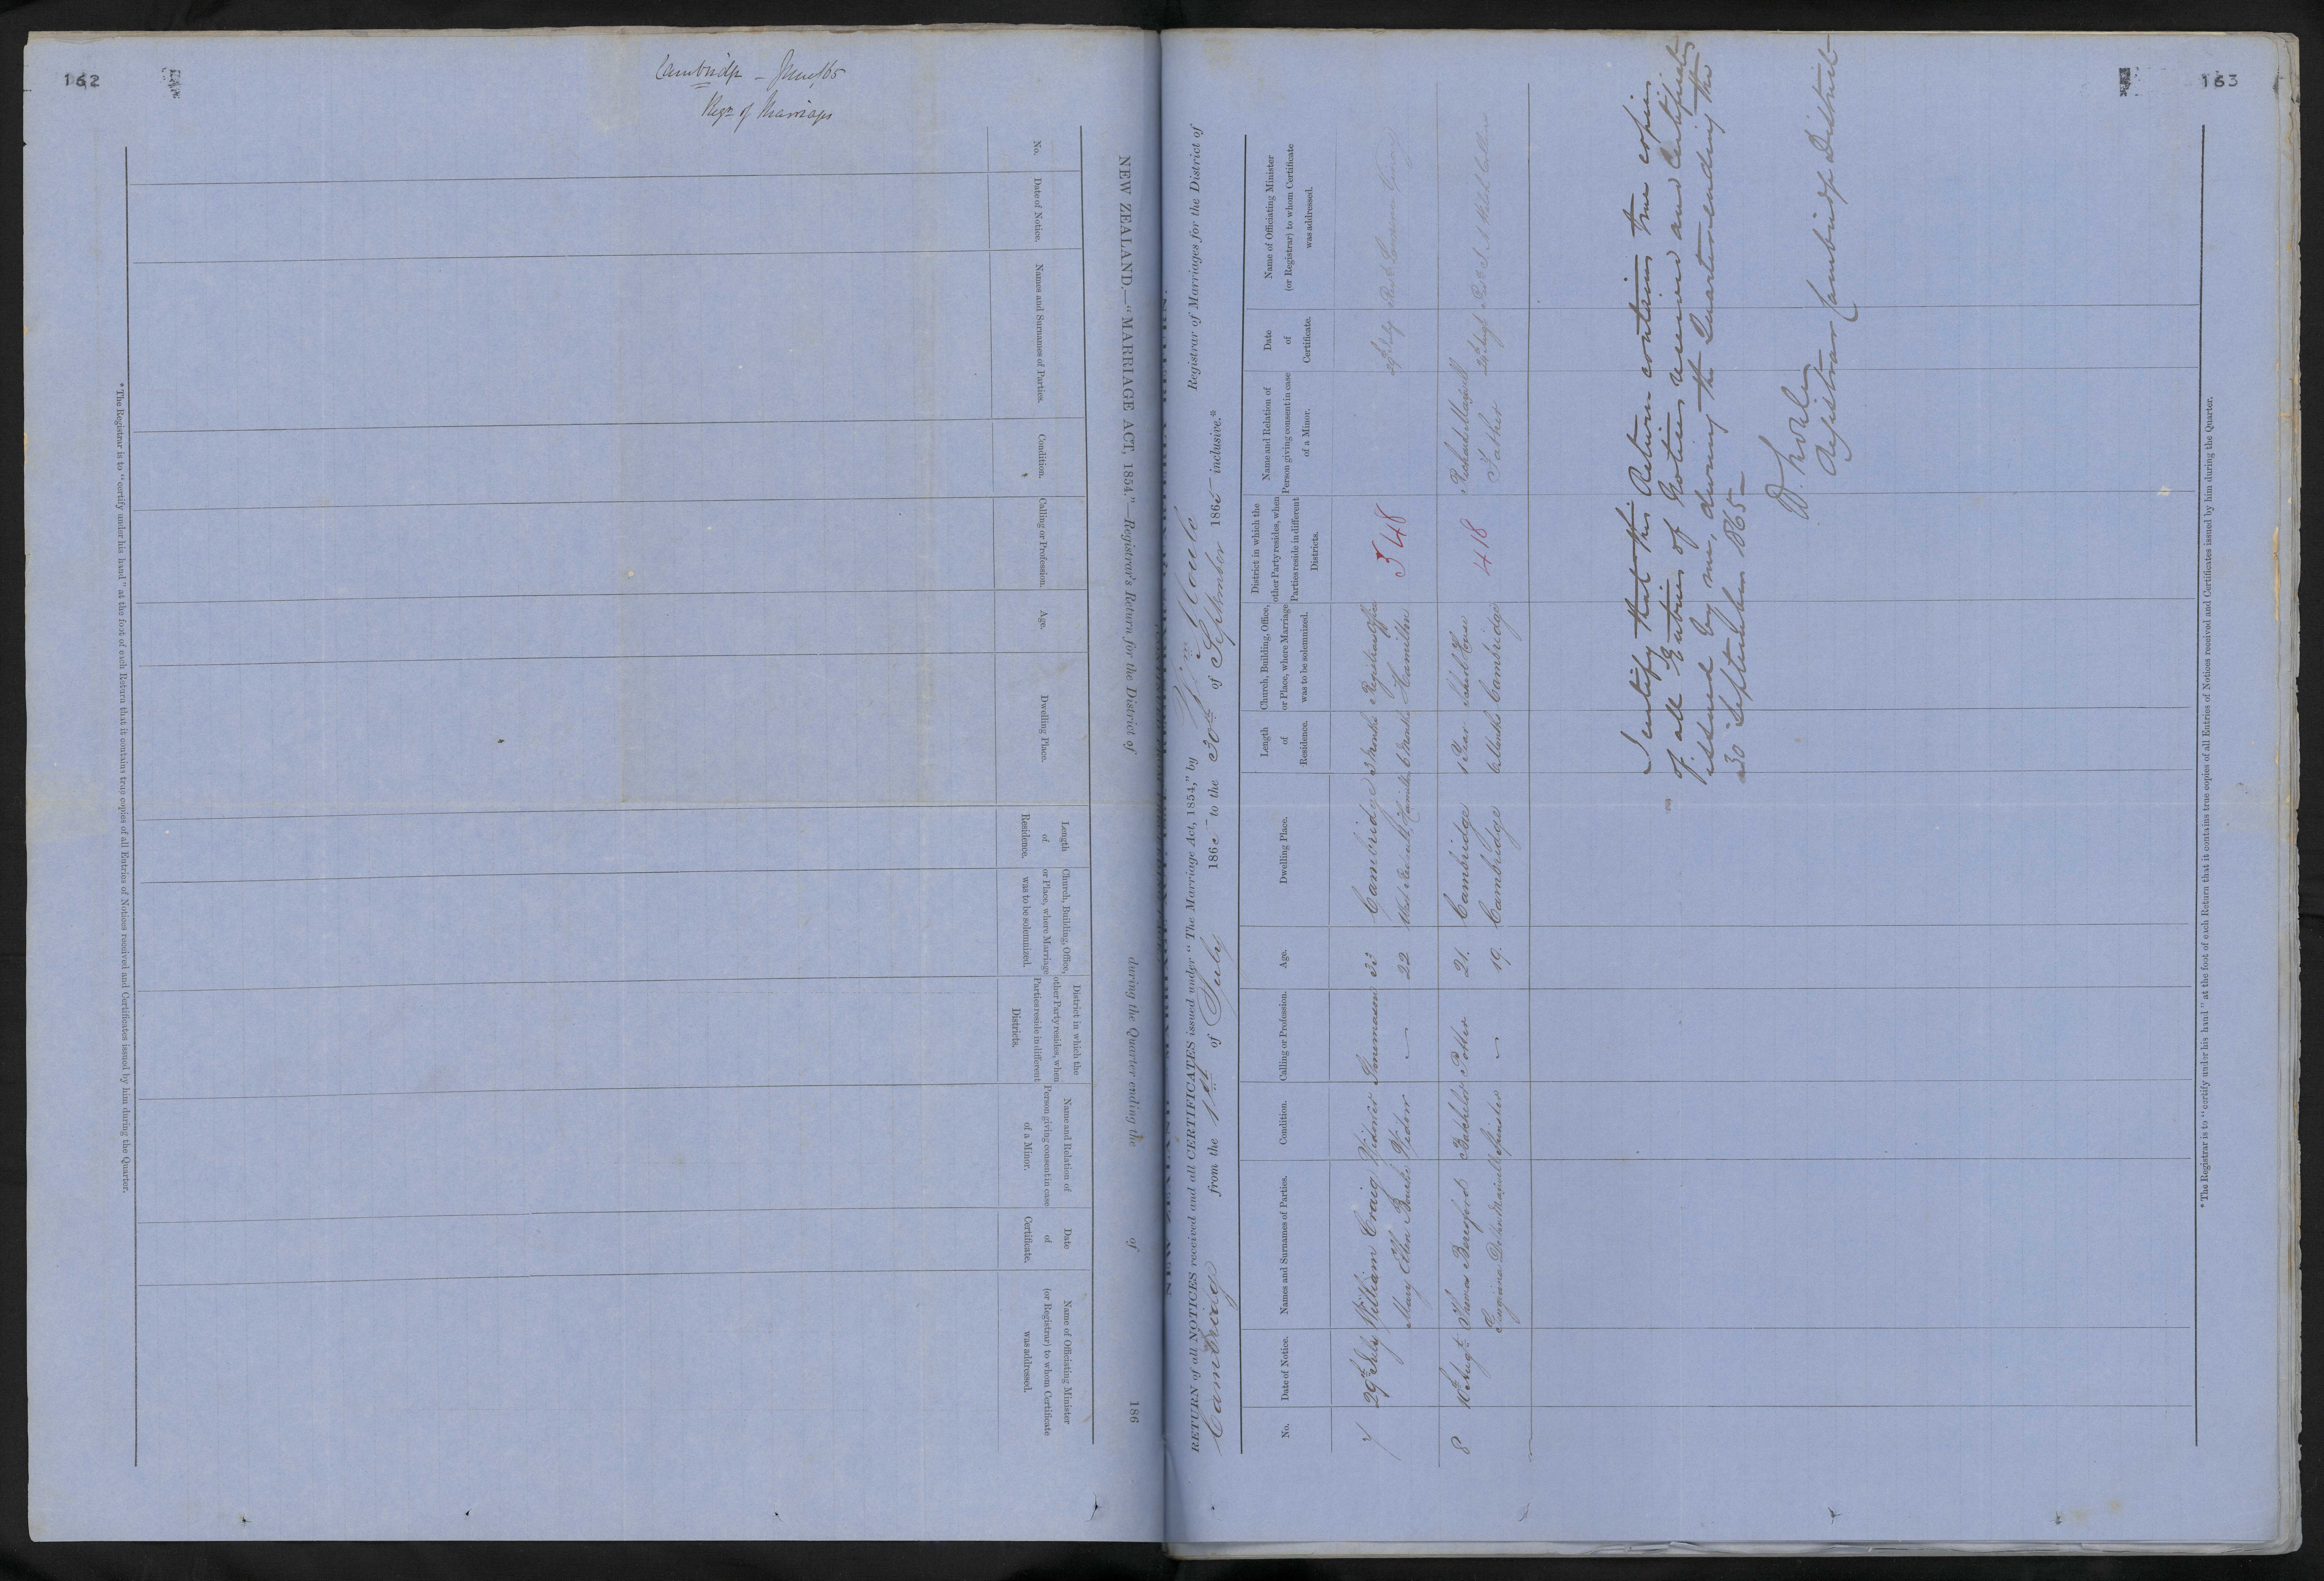 162
Cambridge - June /65
Regr of Marriages
NEW ZEALAND.—"MARRIAGE ACT, 1854."—Registrar's Return for the District of during the Quarter ending the of 186
No.
Date of Notice.
Names and Surnames of Parties.
Condition.
Calling or Profession.
Age.
Dwelling Place.
Length of Residence.
Church, Building, Office, or Place, where Marriage was to be solemnized.
District in which the other Party resides, when Parties reside in different Districts.
Name and Relation of Person giving consent in case of a Minor.
Date of Certificate.
Name of Officiating Minister (or Registrar) to whom Certificate was addressed.
* The Registrar is to "certify under his hand" at the foot of each Return that it contains true copies of all Entries of Notices received and Certificates issued by him during the Quarter.
163
RETURN of all NOTICES received and all CERTIFICATES issued under "The Marriage Act, 1854," by Wm Registrar of Marriages for the District of
Cambridge from the 1st of July 1865 to the 30th of September 1865 inclusive.*
No.
Date of Notice.
Names and Surnames of Parties.
Condition.
Calling or Profession.
Age.
Dwelling Place.
Length of Residence.
Church, Building, Office, or Place, where Marriage was to be solemnized.
District in which the other Party resides, when Parties reside in different Districts.
Name and Relation of Person giving consent in case of a Minor.
Date of Certificate.
Name of Officiating Minister (or Registrar) to whom Certificate was addressed.
7 29th July William Craig Widower Stonemason 33 Cambridge 3 Months Registrars Office 348 29th July
Mary Ellen Bourke Widow — 22 Hamilton 6 Months Hamilton
8 16 Augt Thomas Beresford Bachelor Potter 21. Cambridge 1 Year School House 418 Richard Maxwell
Georgina Maxwell Spinster — 19. Cambridge 6 Months Cambridge Father
I certify that this Return contains true copies
of all Entries of Notices received and Certificates
issued by me, during the Quarter ending the
30 September 1865 -
Registrar Cambridge District
* The Registrar is to "certify under his hand" at the foot of each Return that it contains true copies of all Entries of Notices received and Certificates issued by him during the Quarter.